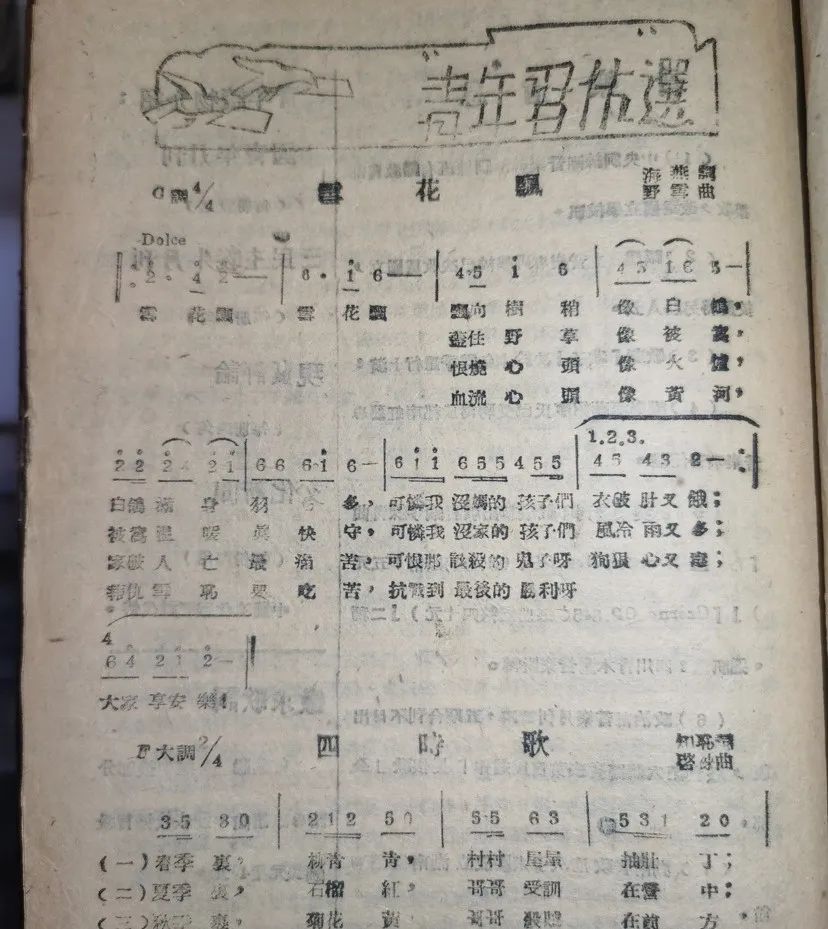 青年習作選
C調4/4 雪花飄 海燕詞
野雲曲
Dolce
2· 4 2— 6· i 6— 4·5 i 6 45 i6 5—
雪 花 飄 雪 花 飄 飄向 樹 梢 像 白 鴿,
蓋住 野 草 像 被 窩,
恨燒 心 頭 像 火 爐,
血流 心 頭 像 黃 河,
1.2.3.
22 24 2i 66 6·i 6— 6ii 655 455 45 43 2—
白鴿 滿 身 羽 多, 可憐我 沒媽的 孩子們 衣破 肚又 餓;
被窩 溫 暖 真 快 守, 可憐我 沒家的 孩子們 風冷 雨又 多;
家破 人 亡 最 痛 苦, 可恨那 殺的 鬼子呀 狗狠 心又 毒;
報仇 雪 恥 要 吃 苦, 抗戰到 最後的 勝利呀
4
64 2i 2—
大家 享安 樂!
F大調2/4 四時歌 知恥詞
曲
3·5 30 212 50 5·5 63 531 20
(一)春季 裏, 柳青 青, 村村 屋屋 抽壯 丁;
(二)夏季 裏, 石榴 紅, 哥哥 受訓 在營 中;
(三)秋季 裏, 菊花 黃 哥哥 殺賊 在前 方